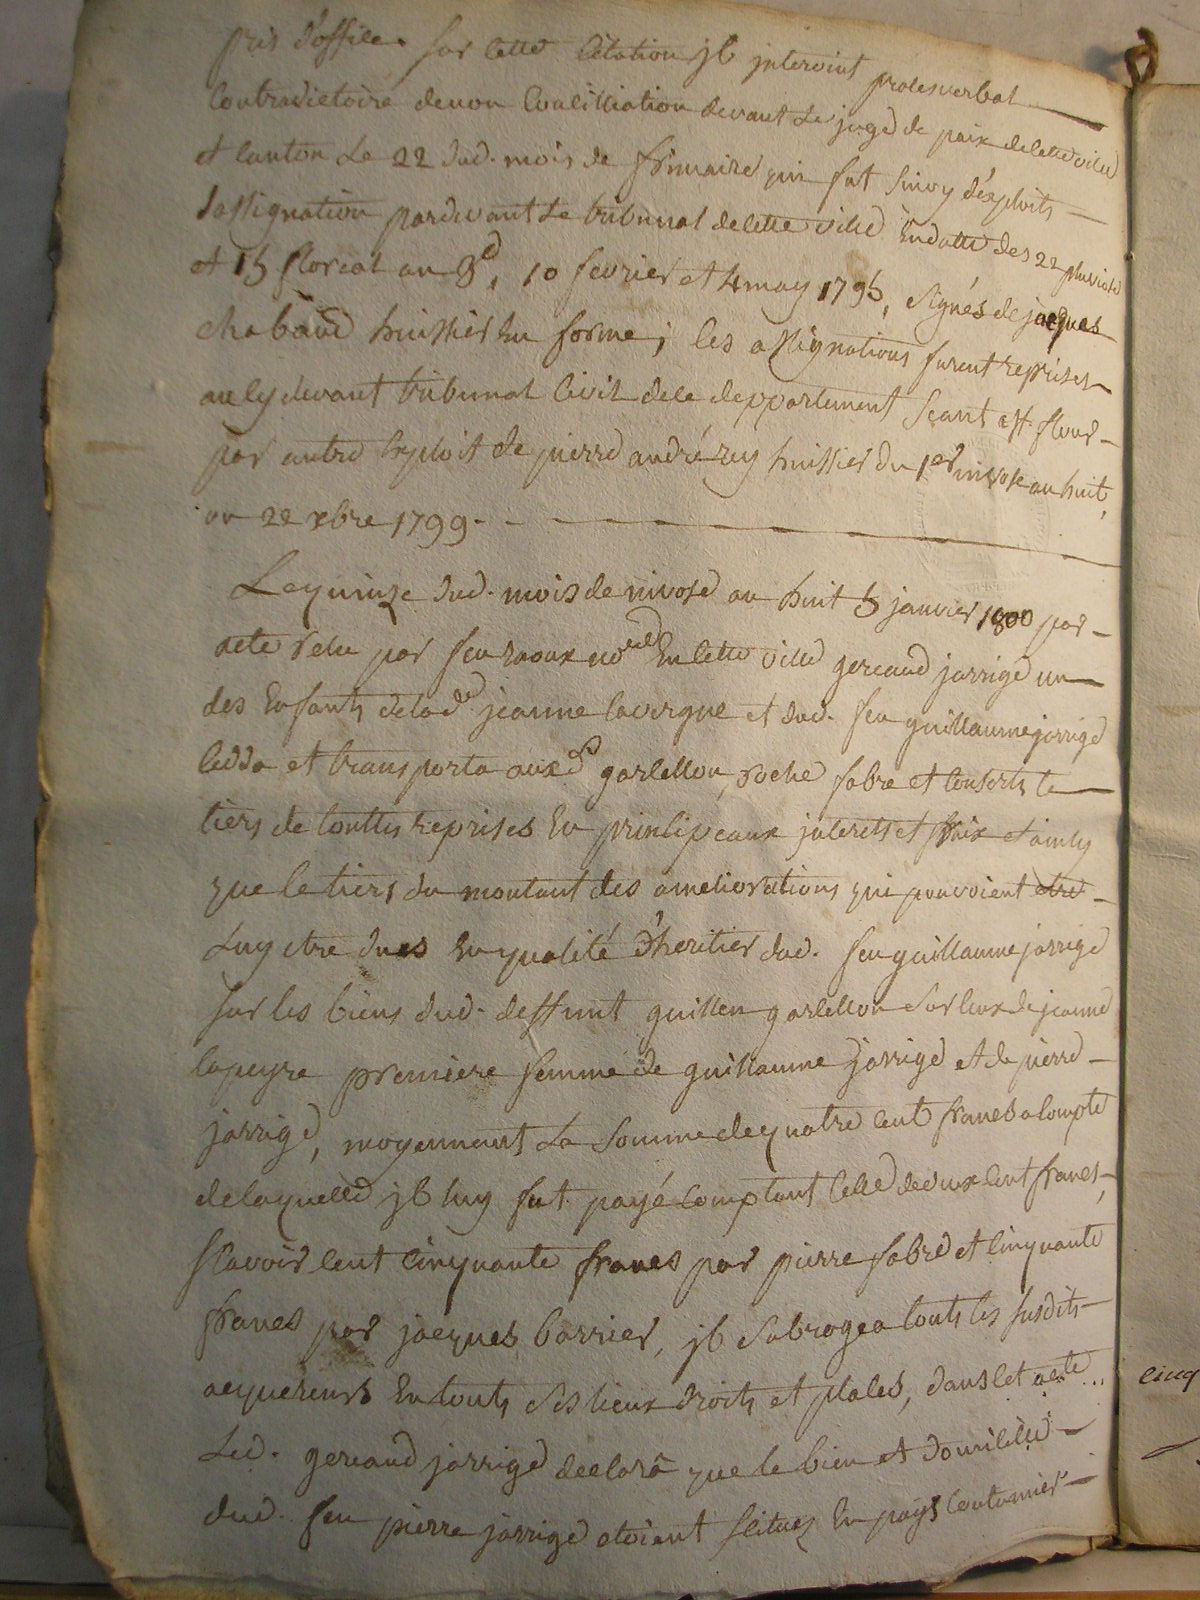 pris d'office. sur cette citation jl intervint procesverbal
contradictoire denon conciliation devant le juge de paix decette ville
et canton le 22 dud. mois de frimaire qui fut suivy d'exploits
d'assignation pardevant le tribunal decette ville en datte des 22 pluviose
et 15 floreal an 3e, 10 fevrier et 4 may 1795, signés de jacques
chabaud huissier en forme; les assignations furent reprises
au cy devant tribunal civil dece deppartement seant a st. flour
par autre exploit de pierre andré rey huissier du 1er nivose an huit,
ou 22 xbre 1799.
Le quinze dud. mois de nivose an huit 5 janvier 1800 par
acte retu par feu raoux nore en cette ville gereaud jarrige un
des enfants delade jeanne lavergne et dud. feu guillaume jarrige
ceda et transporta auxds garcellon, roche fabre et consorts le
tiers de touttes reprises en principeaux jnterets et frais et ainsy
que le tiers du montant des ameliorations qui pouvoient etre
luy etre dues en qualité d'heritier dud. feu guillaume jarrige
sur les biens dud. deffunt guillen garcellon sur ceux de jeanne
lapeyre premiere femme de guillaume jarrige et de pierre
jarrige, moyennant la somme de quatre cent francs a compte
de laquelle jl luy fut payé comptant celle de deux cent francs,
scavoir cent cinquante francs par pierre fabre et cinquante
francs par jacques barrier, jl subrogea touts les susdits
acquereurs en touts ses lieux droits et places, dans cet acte
led. gereaud jarrige declara que le bien et domicile
dud. feu pierre jarrige etoient scitues en pays coutumier
cinq